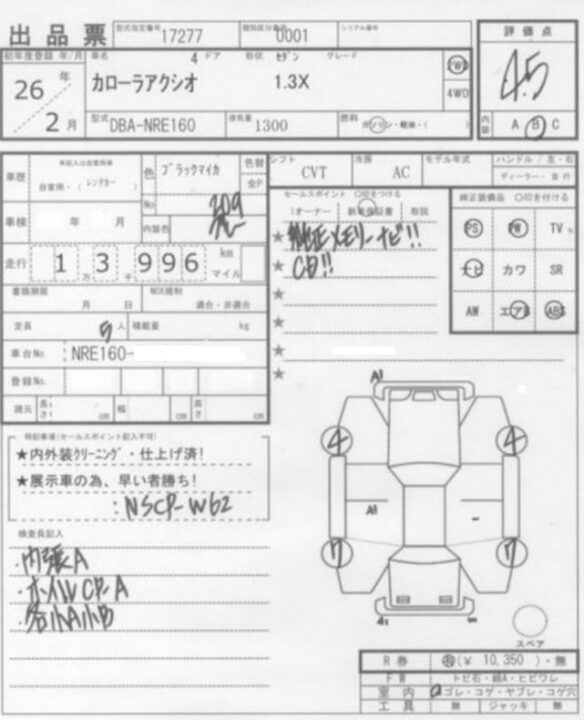 出品票 型式指定番号 17277 類別区分番号 0001 シリアル番号
評価点
4.5
内装 A B C
初年度登録 年/月 車名 4ドア 形状 セダン グレード
26年 カローラアクシオ 1.3X 2WD
4WD
2月 型式 DBA-NRE160 排気量 1300 燃料 ガソリン・軽油・( )
車歴 自家用・(レンタカー) 色 ブラックマイカ 色替
全P
No 209
内装色
シフト CVT 冷房 AC モデル年式 ハンドル / 左・右
ディーラー・並行
車検 年 月
走行 1万3千996 km
マイル
セールスポイント ○印をつける
1オーナー 新車保証書 取説
★純正メモリーナビ!!
★CD!!
★
★
★
★
純正装備品 ○印を付ける
PS PW TV
ナビ カワ SR
AW エアB ABS
書類期限 月 日 NOX規制 適合・非適合
定員 5人 積載量 kg
車台No. NRE160-
登録No.
諸元 長さ cm 幅 cm 高さ cm
特記事項(セールスポイント記入不可)
★内外装クリーニング・仕上げ済!
★展示車の為、早い者勝ち!
:NSCP-W62
検査員記入
・内張A
・ホイルCP-A
・各小A小B
A1
4 4
A1 -
7 7
スペア
R券 (¥ 10,350)・無
FW トビ石・線A・ヒビワレ
室内 ゴレ・コゲ・ヤブレ・コゲ穴
工具 無 ジャッキ 無